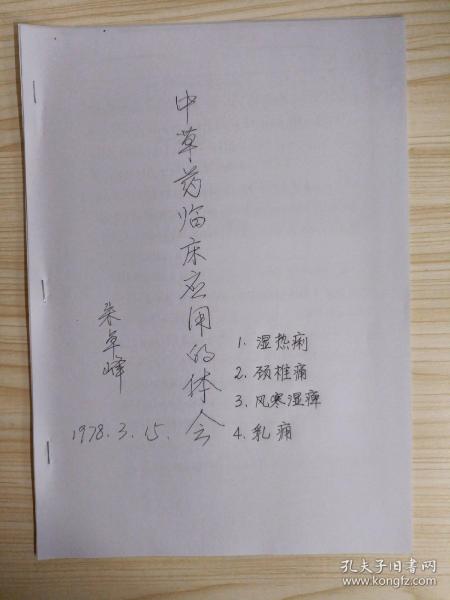 中草药临床应用的体会
朱卓峰
1978.3.15.
1. 湿热痢
2. 颈椎痛
3. 风寒湿痹
4. 乳痈
孔夫子旧书网
www.kongfz.com